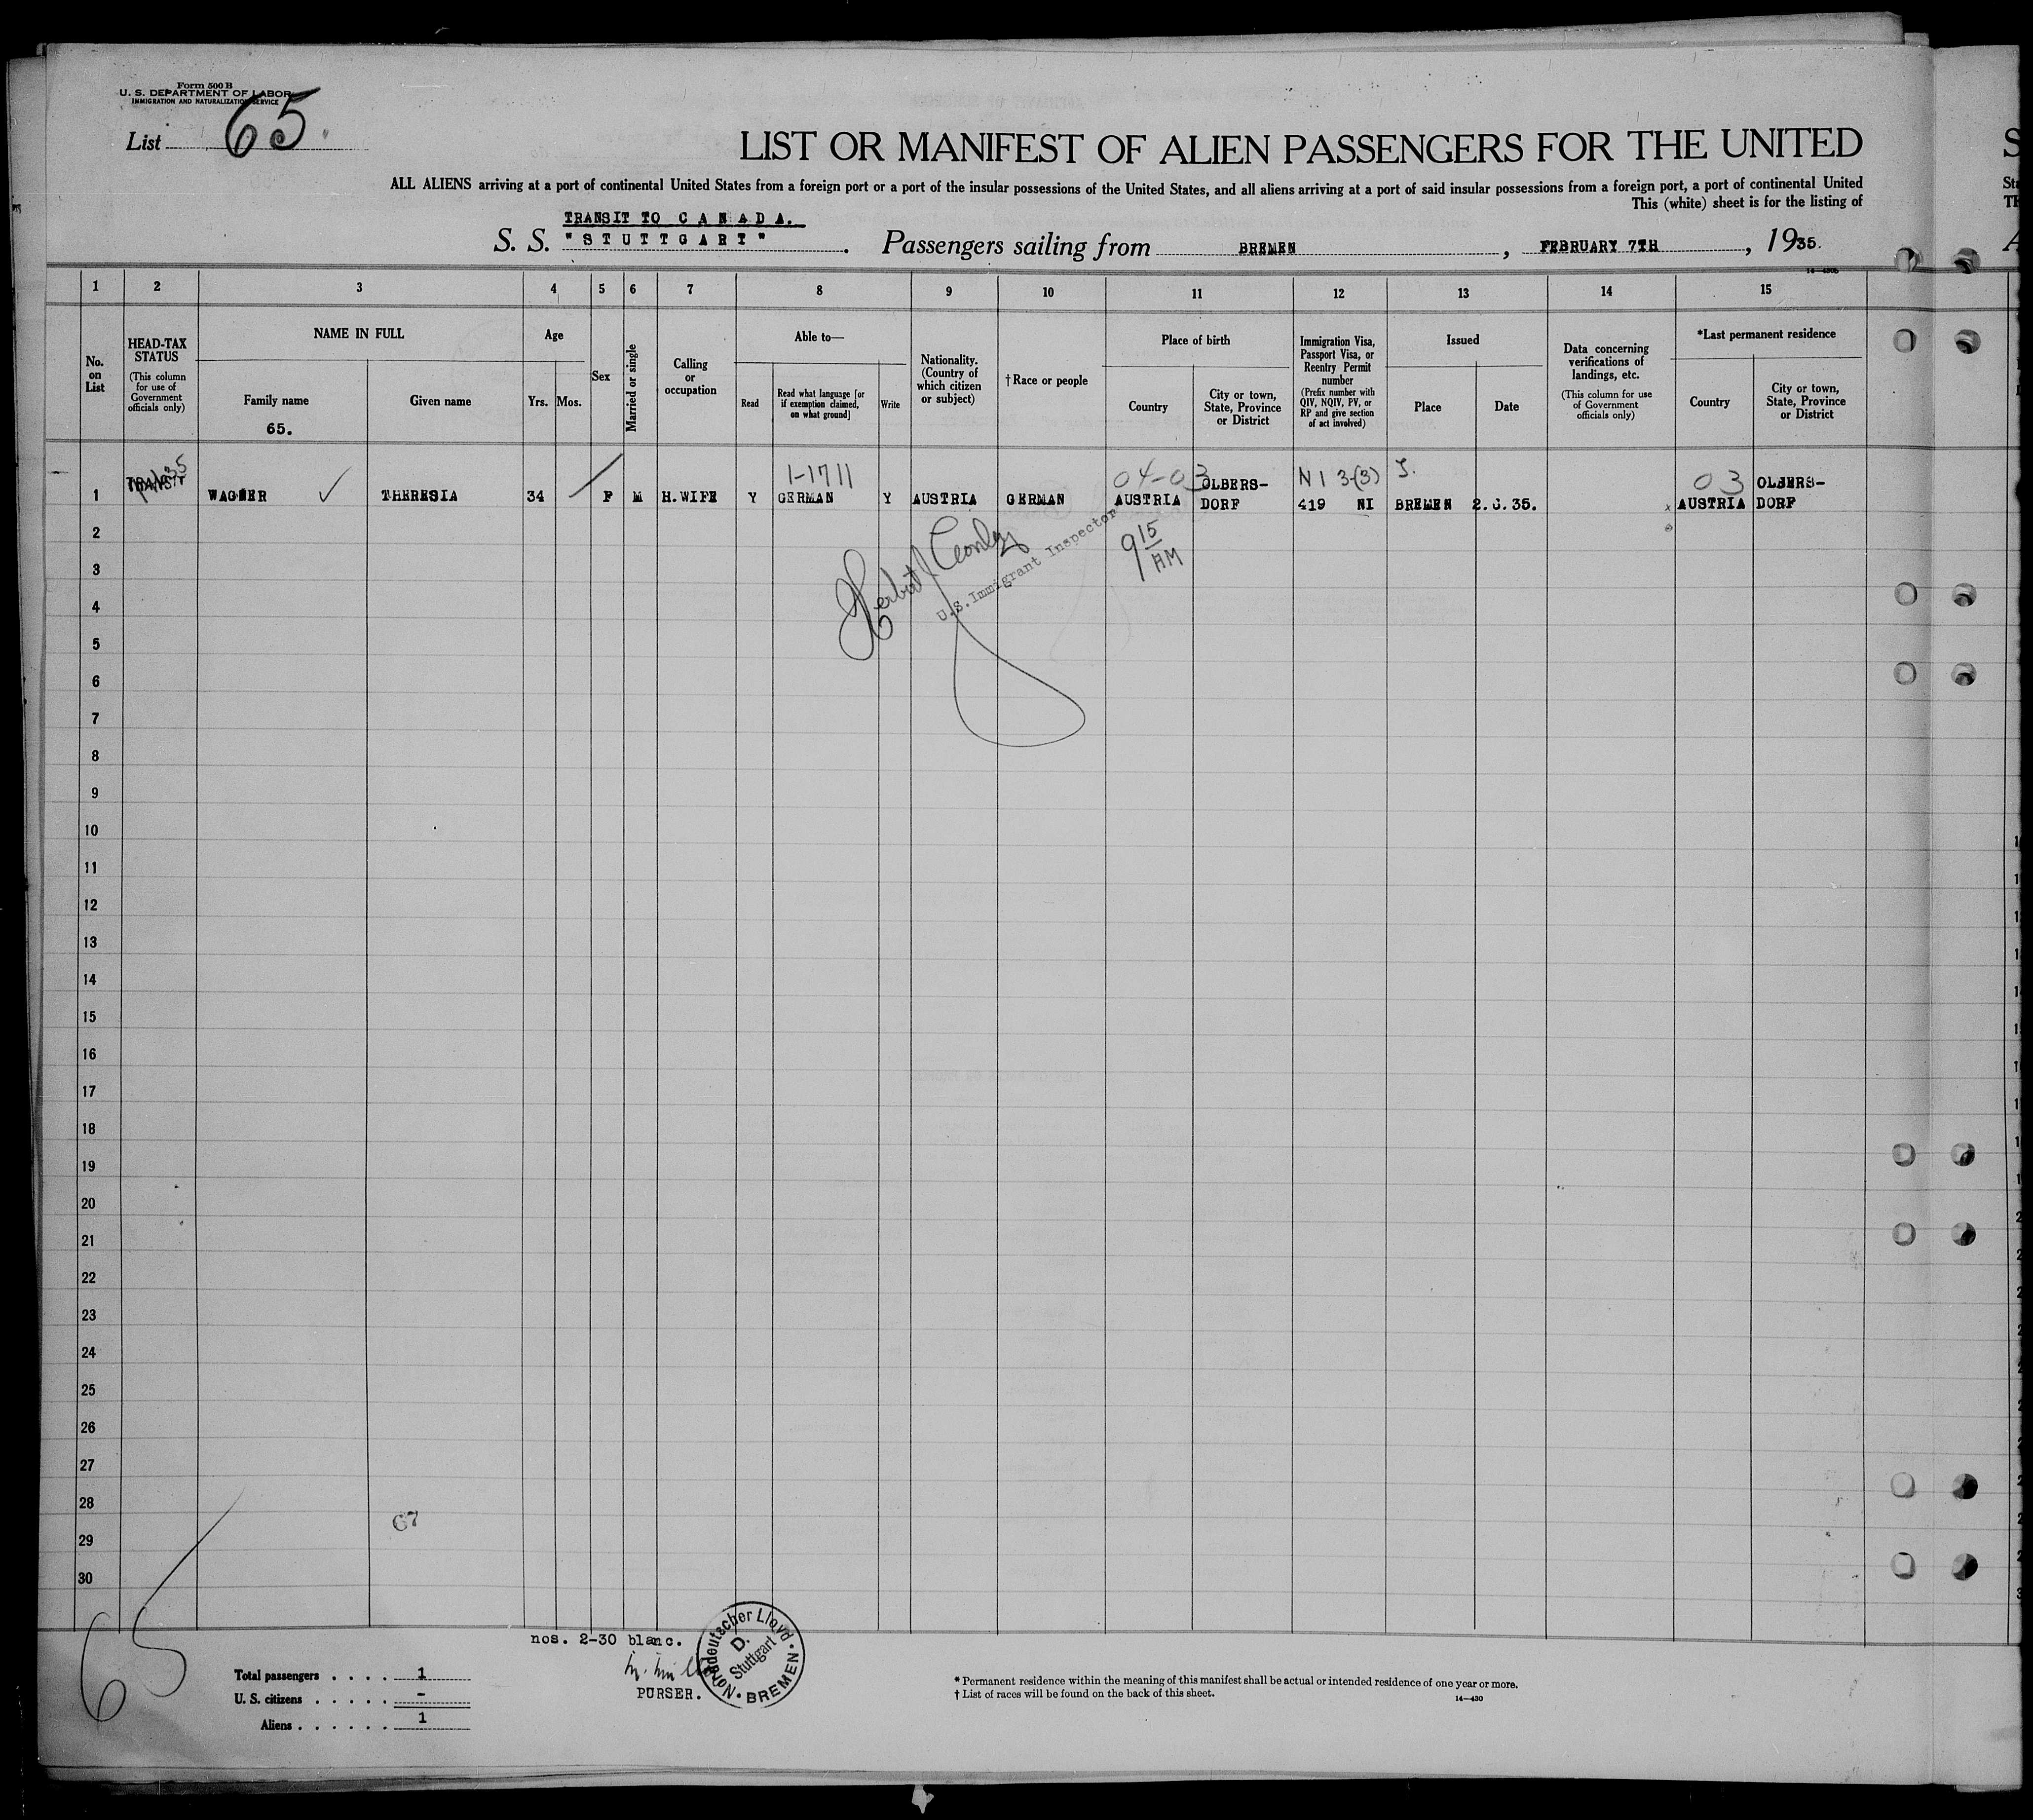 Form 500 B
U. S. DEPARTMENT OF LABOR
IMMIGRATION AND NATURALIZATION SERVICE
List 65.
LIST OR MANIFEST OF ALIEN PASSENGERS FOR THE UNITED
ALL ALIENS arriving at a port of continental United States from a foreign port or a port of the insular possessions of the United States, and all aliens arriving at a port of said insular possessions from a foreign port, a port of continental United
This (white) sheet is for the listing of
TRANSIT TO CANADA.
S. S. "STUTTGART". Passengers sailing from BREMEN, FEBRUARY 7TH, 1935.
14—430b
1 2 3 4 5 6 7 8 9 10 11 12 13 14 15
No. on List
HEAD-TAX STATUS
(This column for use of Government officials only)
NAME IN FULL
Family name
65.
Given name
Age
Yrs. Mos.
Sex
Married or single
Calling or occupation
Able to—
Read
Read what language [or if exemption claimed, on what ground]
Write
Nationality. (Country of which citizen or subject)
† Race or people
Place of birth
Country
City or town, State, Province or District
Immigration Visa, Passport Visa, or Reentry Permit number
(Prefix number with QIV, NQIV, PV, or RP and give section of act involved)
Issued
Place
Date
Data concerning verifications of landings, etc.
(This column for use of Government officials only)
*Last permanent residence
Country
City or town, State, Province or District
1-1711 04-03 N I 3-(3) 03
1 TRANSIT WAGNER ✓ THERESIA 34 F M H.WIFE Y GERMAN Y AUSTRIA GERMAN AUSTRIA OLBERS-DORF 419 NI BREMEN 2.6.35. AUSTRIA OLBERS-DORF
U.S. Immigrant Inspector
9 15 AM
2
3
4
5
6
7
8
9
10
11
12
13
14
15
16
17
18
19
20
21
22
23
24
25
26
27
28
67
29
30
65
nos. 2-30 blanc.
PURSER.
Norddeutscher Lloyd · BREMEN ·
D. Stuttgart
Total passengers . . . . 1
U. S. citizens . . . . . -
Aliens . . . . . . 1
* Permanent residence within the meaning of this manifest shall be actual or intended residence of one year or more.
† List of races will be found on the back of this sheet.
14—430